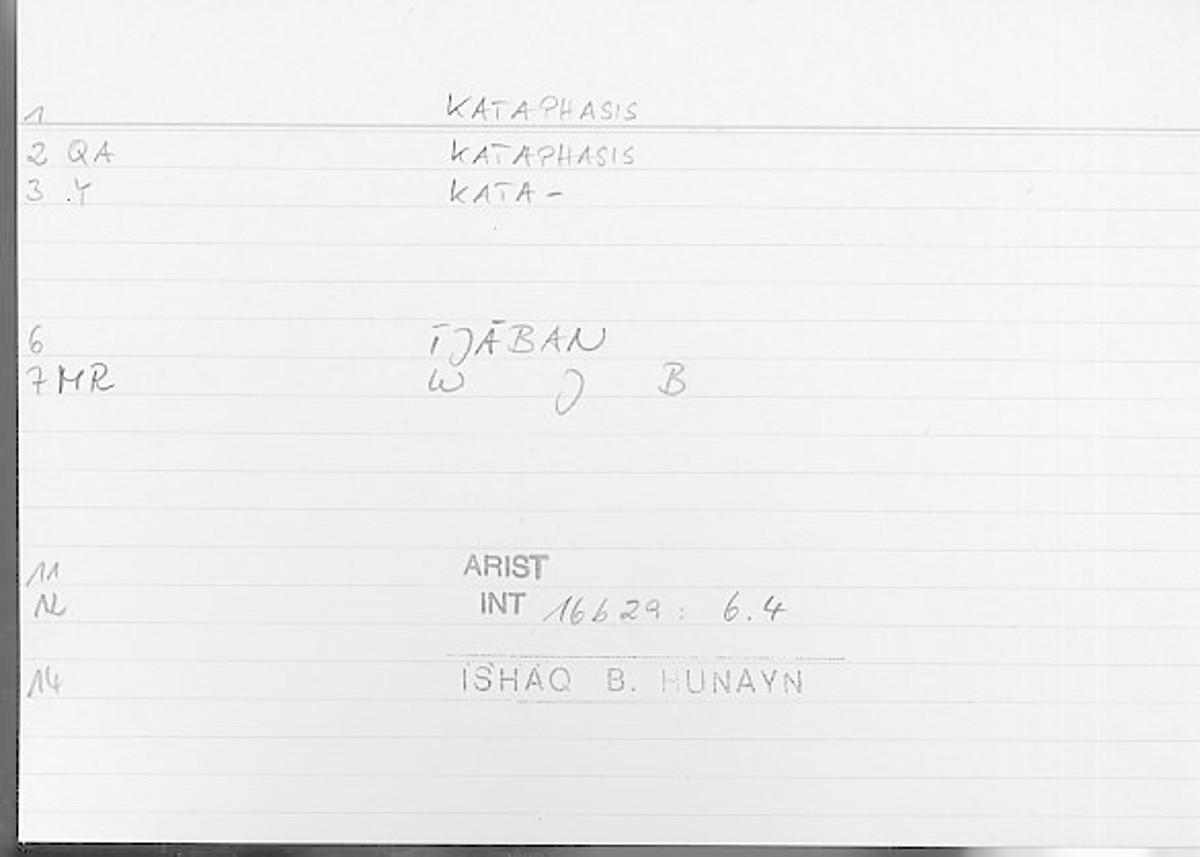 1 KATAPHASIS
2 QA KATAPHASIS
3 .Y KATA-
6 ĪJĀBAN
7 MR W J B
11 ARIST
12 INT 16b29: 6.4
14 ISHĀQ B. HUNAYN